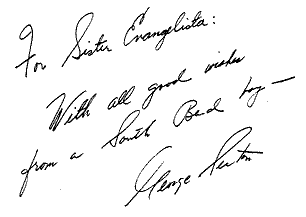 For Sister Evangelista:
With all good wishes
from a South Bend boy —
George Seaton